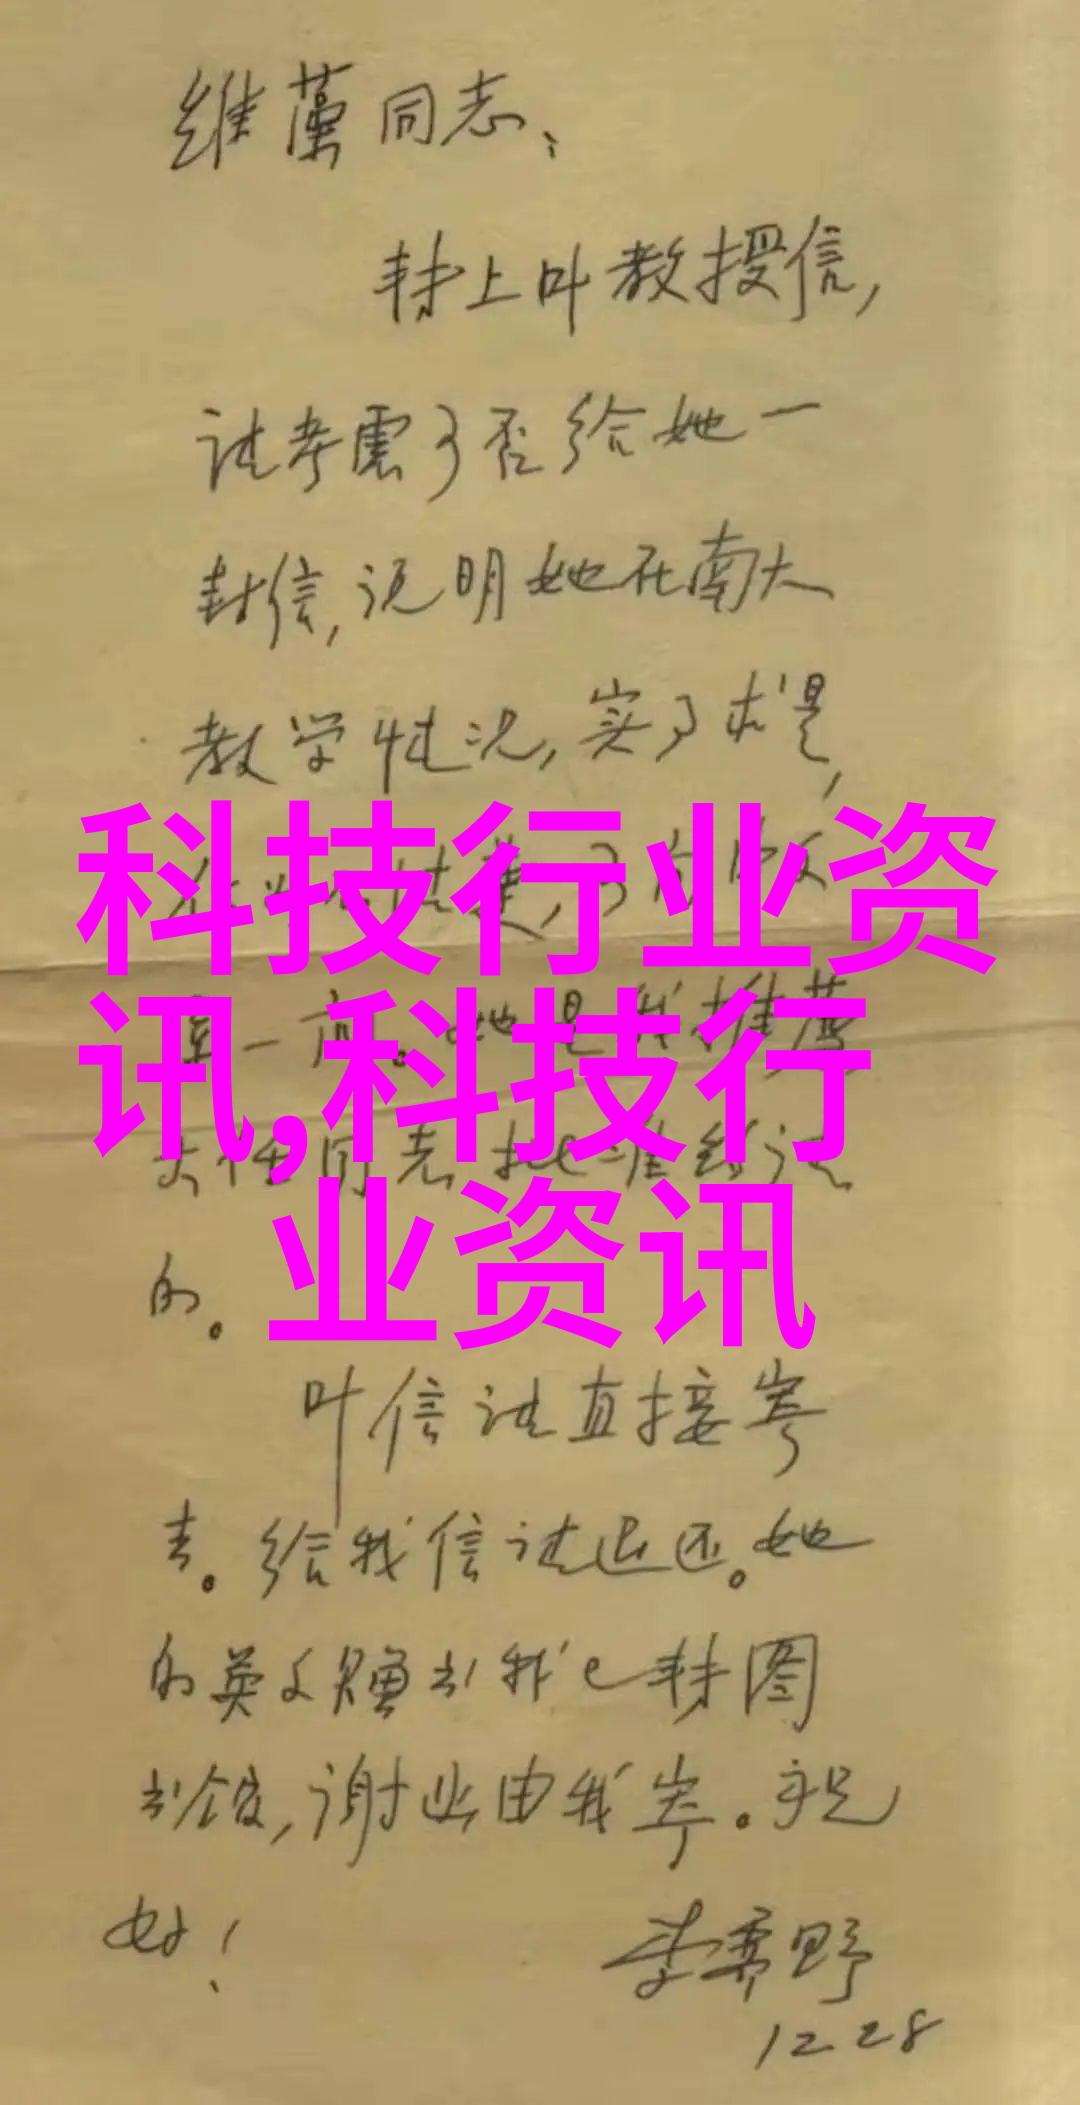 维藻同志、
转上叶教授信,
请考虑可否给她一
封信,说明她在南大
教学情况,实事求是,
清楚,
她是我推荐
同志批准给
的。
叶信请直接寄
去。给我信请退还。她
的英文赠书我已转图
书馆,谢必由我寄。祝
好!
李霁野
12 28
科技行业资
讯,科技行
业资讯